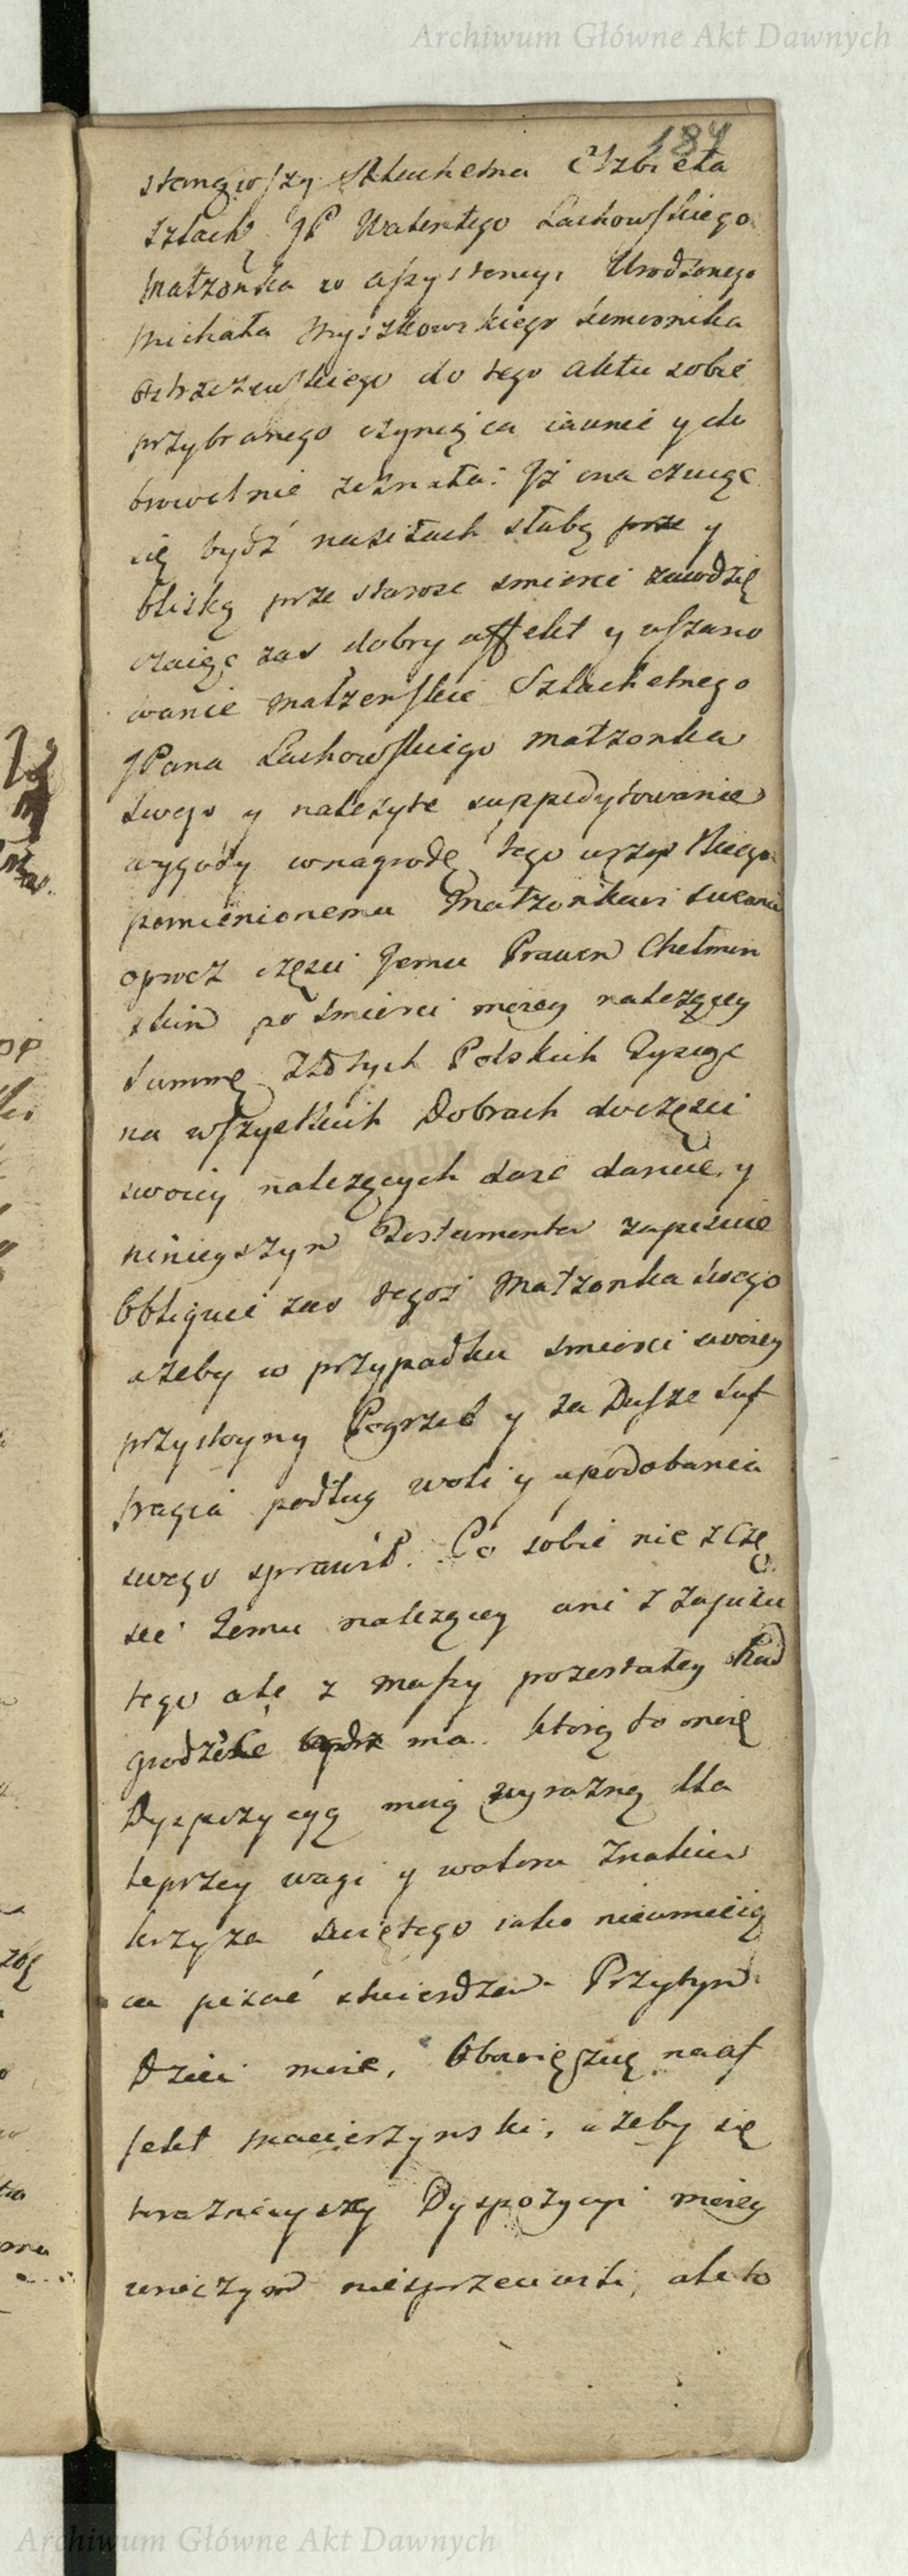 Archiwum Główne Akt Dawnych
184
stanąwszy Szlachetna Elzbieta
szlach JP Walentego Lachowskiego
małzonka w assystencyi Urodzonego
Michała Myszkowskiego
ostrzeszewskiego do tego aktu sobie
przybranego czyniąca iawnie y do
browolnie zeznała: Jż ona czuiąc
się bydź na siłach słabą prze y
bliską prze starosc smierci zawdzię
czaiąc zas dobry affekt y uszano
wanie małzenskie Szlachetnego
JPana Lachowskiego małzonka
swego y nalezyte suppedytowanie
wygody w nagrodę tego wszystkiego
pomienionemu Małzonkowi swemu
oprocz częsci Jemu Prawem Chełmin
skim po smierci moiey nalezącey
summę Złotych Polskich Tysiąc
na wszystkich Dobrach do częsci
swoiey nalezących daie daruie y
ninieyszym Testamentem zapisuie
Obliguie zas tegoż Małzonka swego
azeby w przypadku smierci swoiey
przystoyny Pogrzeb y za Dusze suf
fragia podług woli y upodobania
swego sprawił. Co sobie nie z Czę
sci Jemu nalezącey ani z zapisu
tego ale z massy pozostałey
ma. ktorą to moię
Dyspozycyą moią wyrazną dla
lepszey wagi y waloru Znakiem
krzyza swiętego iako nieumieią
ca pisać stwierdzam Przytym
Dzieci moie, Obowięzuię na af
fekt macierzynski, azeby się
terazneyszy Dyspozycyi moiey
w niczym niesprzeciwili, ale to
Archiwum Główne Akt Dawnych